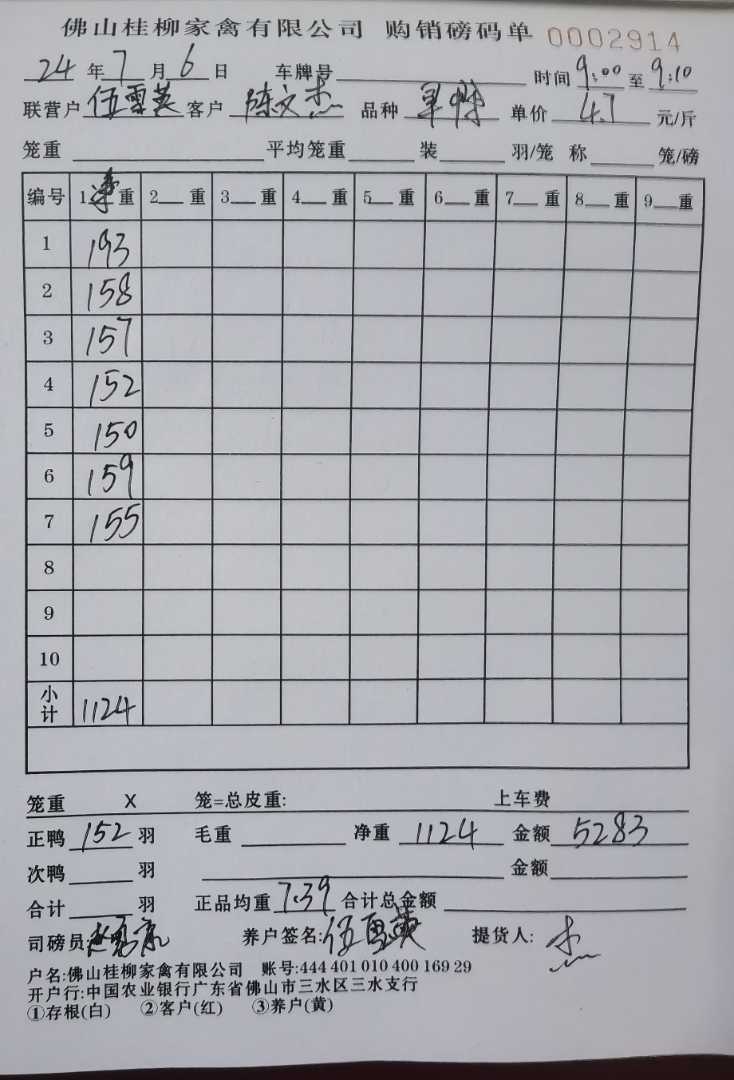 佛山桂柳家禽有限公司 购销磅码单 0002914
24 年 7 月 6 日 车牌号 时间 9:00 至 9:10
联营户 伍雪英 客户 陈文杰 品种 单价 4.7 元/斤
笼重 平均笼重 装 羽/笼 称 笼/磅
编号 1 净 重 2 重 3 重 4 重 5 重 6 重 7 重 8 重 9 重
1 193
2 158
3 157
4 152
5 150
6 159
7 155
8
9
10
小计 1124
笼重 X 笼=总皮重: 上车费
正鸭 152 羽 毛重 净重 1124 金额 5283
次鸭 羽 金额
合计 羽 正品均重 7.39 合计总金额
司磅员: 养户签名: 伍雪英 提货人: 杰
户名:佛山桂柳家禽有限公司 账号:444 401 010 400 169 29
开户行:中国农业银行广东省佛山市三水区三水支行
①存根(白) ②客户(红) ③养户(黄)